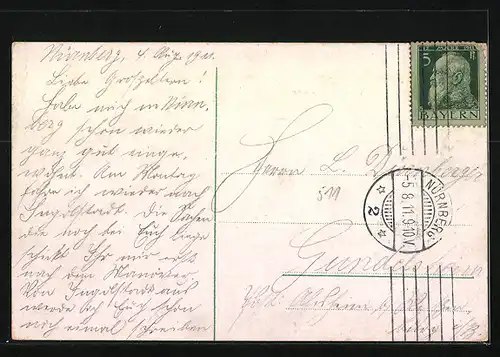 Nürnberg, 4. Aug. 1911.
Liebe Großeltern!
Habe mich in Nürn-
berg schon wieder
ganz gut einge-
wöhnt. Am Montag
fahre ich wieder nach
Ingolstadt. Die Sachen
die noch bei Euch liegen
schickt Ihr mir erst
nach dem Manöver.
Von Ingolstadt aus
werde ich Euch schon
noch einmal schreiben
5 PF
BAYERN
Herrn L.
511
NÜRNBERG
5.8.11.9-10V
* 2 *
Post